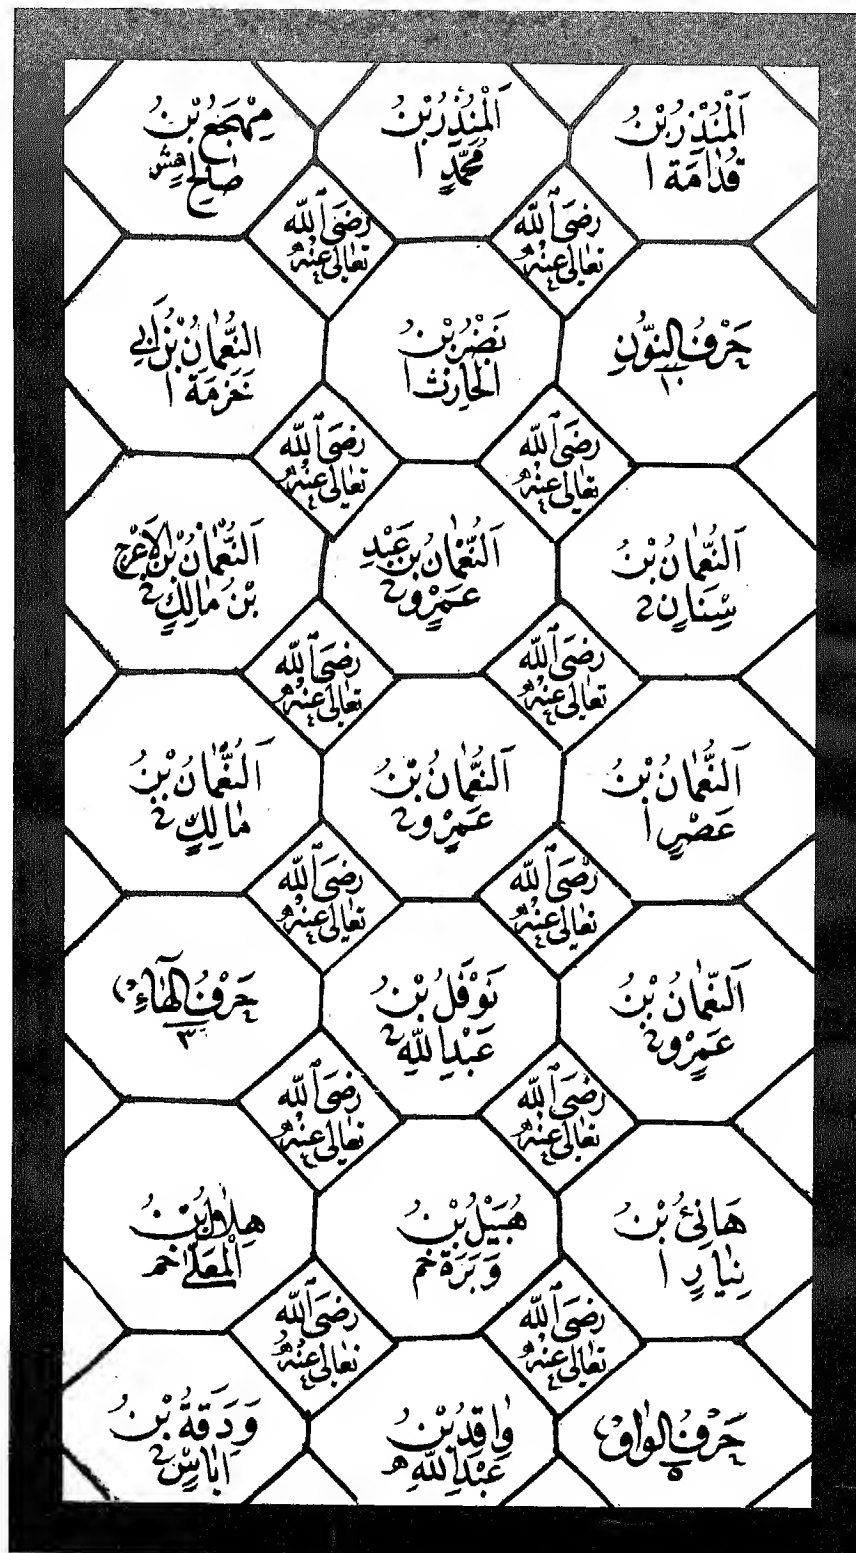 اَلْمُنْذِرُ بْنُ
قُدَامَةَ ا
اَلْمُنْذِرُ بْنُ
مُحَمَّدٍ ا
مِهْجَعُ بْنُ
صَالِحٍ
رَضِيَ اللّٰهُ
تَعَالٰى عَنْهُ
رَضِيَ اللّٰهُ
تَعَالٰى عَنْهُ
حَرْفُ النُّوْنِ
١٠
نَضْرُ بْنُ
الْحَارِثِ ا
اَلنُّعْمَانُ بْنُ اَبِي
خَزْمَةَ ا
رَضِيَ اللّٰهُ
تَعَالٰى عَنْهُ
رَضِيَ اللّٰهُ
تَعَالٰى عَنْهُ
اَلنُّعْمَانُ بْنُ
سِنَانٍ
اَلنُّعْمَانُ بْنُ عَبْدِ
عَمْرٍو
اَلنُّعْمَانُ بْنُ الْاَعْرَجِ
بْنُ مَالِكٍ
رَضِيَ اللّٰهُ
تَعَالٰى عَنْهُ
رَضِيَ اللّٰهُ
تَعَالٰى عَنْهُ
اَلنُّعْمَانُ بْنُ
عَصْرٍ ا
اَلنُّعْمَانُ بْنُ
عَمْرٍو
اَلنُّعْمَانُ بْنُ
مَالِكٍ
رَضِيَ اللّٰهُ
تَعَالٰى عَنْهُ
رَضِيَ اللّٰهُ
تَعَالٰى عَنْهُ
اَلنُّعْمَانُ بْنُ
عَمْرٍو
نَوْفَلُ بْنُ
عَبْدِ اللّٰهِ
حَرْفُ الْهَاءِ
٣
رَضِيَ اللّٰهُ
تَعَالٰى عَنْهُ
رَضِيَ اللّٰهُ
تَعَالٰى عَنْهُ
هَانِئُ بْنُ
نِيَارٍ ا
هُبَيْلُ بْنُ
وَبَرَةَ خم
هِلَالُ بْنُ
الْمُعَلّٰى خم
رَضِيَ اللّٰهُ
تَعَالٰى عَنْهُ
رَضِيَ اللّٰهُ
تَعَالٰى عَنْهُ
حَرْفُ الْوَاوِ
٥
وَاقِدُ بْنُ
عَبْدِ اللّٰهِ ه
وَدَقَةُ بْنُ
اِيَاسٍ